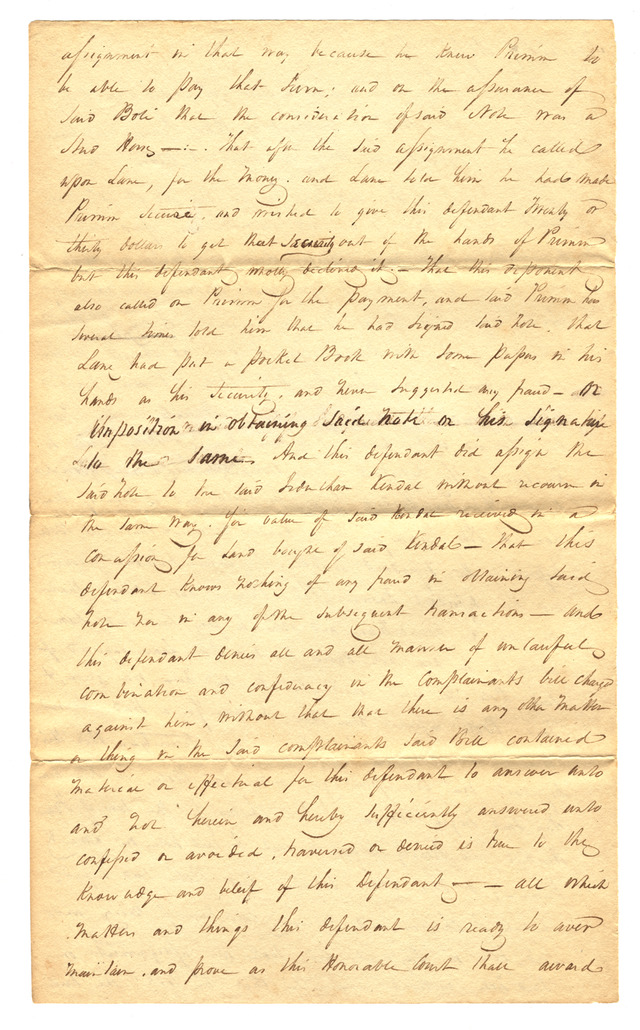 assignment in that way because he knew Primm to
be able to pay that Sum; and on the assurance of
said Bolt that the consideration of said Note was a
Stud Horse — . — . That after the said assignment he called
upon Lane, for the money. and Lane told him he had made
Primm secure, and wished to give this defendant Twenty or
thirty Dollars to get that Security out of the hands of Primm
but this defendant wholly declined it. — That this deponent
also called on Primm for the payment, and said Primm has
several times told him that he had signed said note. that
Lane had put a pocket Book with some papers in his
hands as his Security, and never suggested any fraud — or
imposition in obtaining said note or his signature
to the same. And this defendant did assign the
said note to the said Kendal without recourse in
the same way. for value of said Kendal received in a
for Land bought of said Kendal — That this
defendant knows nothing of any fraud in obtaining said
note nor in any of the subsequent transactions — and
this defendant denies all and all manner of unlawful
combination and confederacy in the Complainants bill charged
against him, without that that there is any other matter
or thing in the said complainants said Bill contained
material or effectual for this defendant to answer unto
and not herein and hereby sufficiently answered unto
confessed or avoided, traversed or denied is true to the
Knowledge and beleif of this Defendant — — all which
matters and things this defendant is ready to aver
maintain, and prove as this Honorable Court shall award